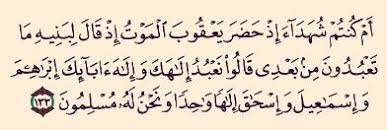 أَمْ كُنتُمْ شُهَدَآءَ إِذْ حَضَرَ يَعْقُوبَ الْمَوْتُ إِذْ قَالَ لِبَنِيهِ مَا
تَعْبُدُونَ مِنۢ بَعْدِى قَالُوا۟ نَعْبُدُ إِلَٰهَكَ وَإِلَٰهَ ءَابَآئِكَ إِبْرَٰهِـۧمَ
وَإِسْمَٰعِيلَ وَإِسْحَٰقَ إِلَٰهًا وَٰحِدًا وَنَحْنُ لَهُۥ مُسْلِمُونَ ١٣٣